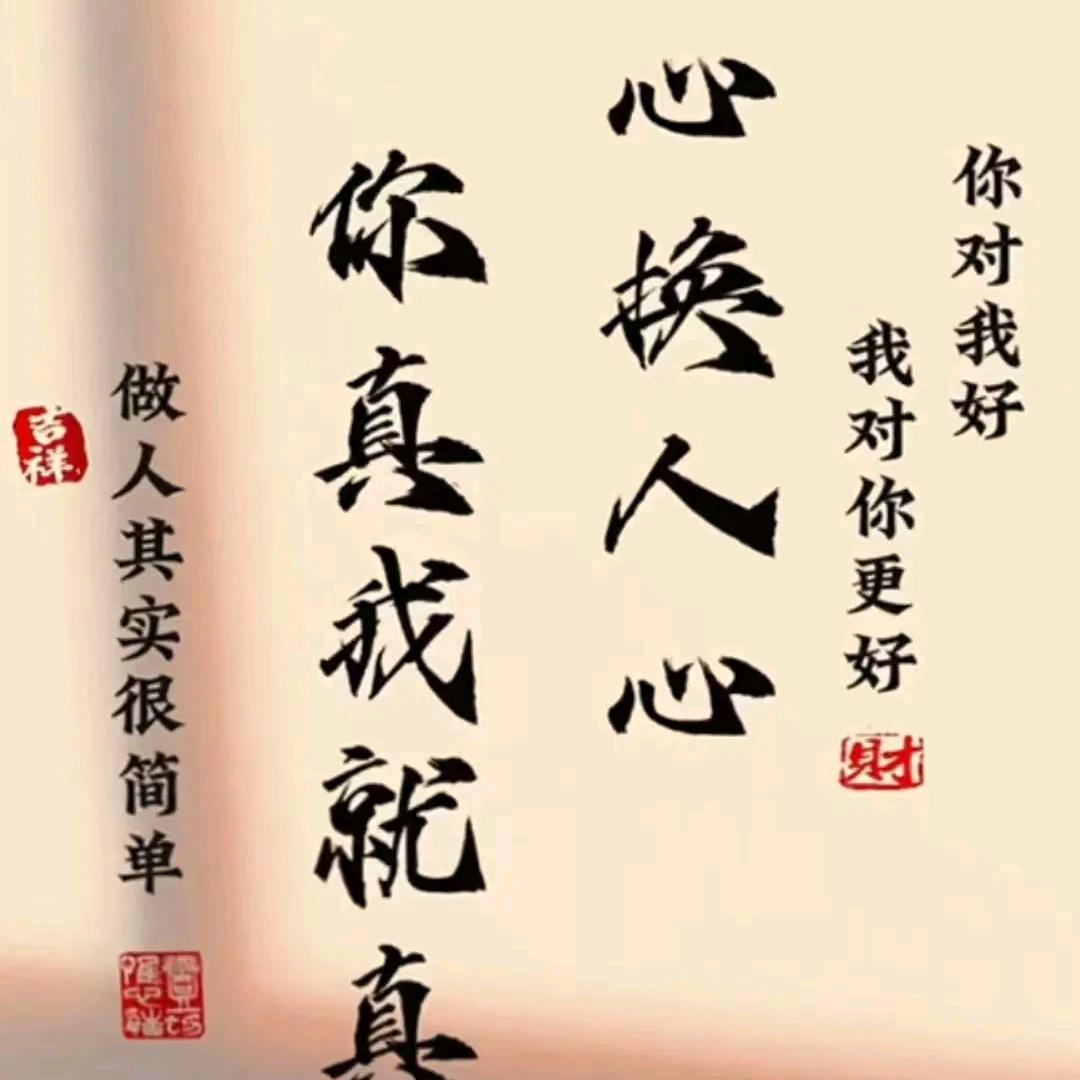 你对我好
我对你更好
財
心换人心
你真我就真
做人其实很简单
吉祥